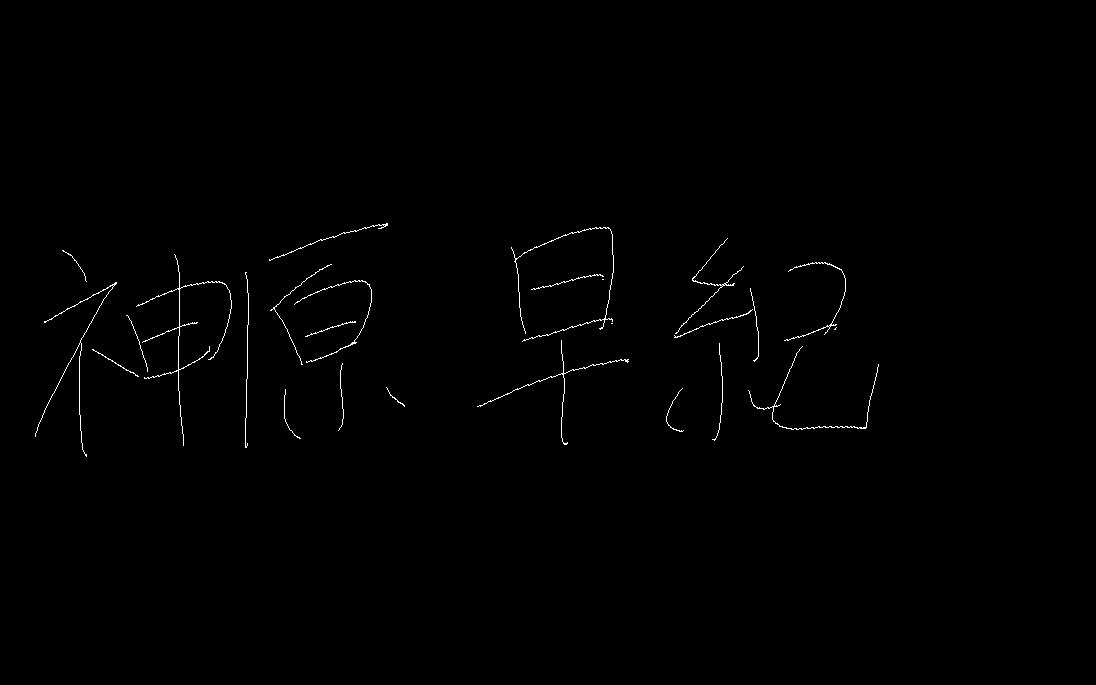 神原早紀